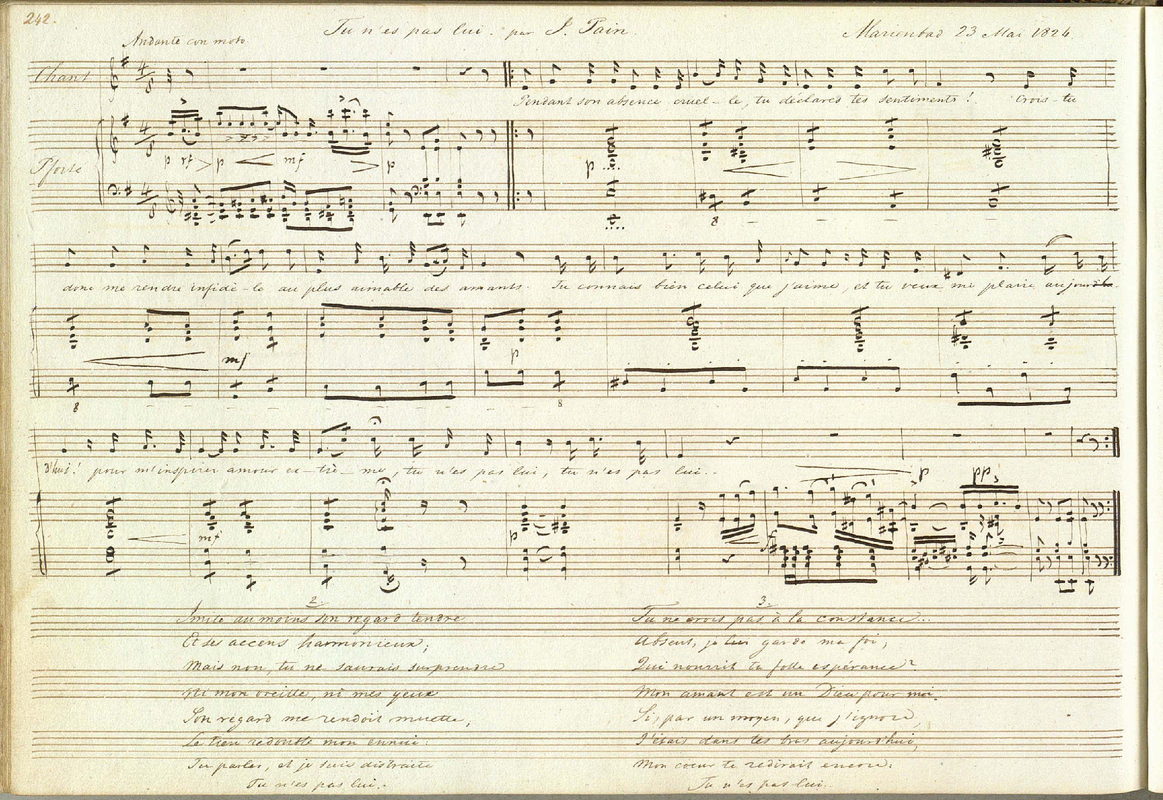 242.
Tu n'es pas lui. par S. Pain
Marienbad 23 Mai 1824
Andante con moto
Chant
Pendant son absence cruel-le, tu declares tes sentiments! Crois-tu
Pforte
p rf > p mf > p
p
donc me rendre infidè-le au plus aimable des amants. Tu connais bien celui que j'aime, et tu veux me plaire aujourd'hu
mf p
8 8
d'hui! pour m'inspirer amour ex-trê-me, tu n'es pas lui, tu n'es pas lui..
p pp
mf p
2.
Imite au moins son regard tendre
Et ses accens harmonieux;
Mais non, tu ne saurais surprendre
Ni mon oreille, ni mes yeux
Son regard me rendoit muette,
Le tien redouble mon ennui:
Tu parles, et je suis distraite
Tu n'es pas lui.
3.
Tu ne crois pas à la constance...
Absent, je lui garde ma foi;
Qui nourrit ta folle espérance?
Mon amant est un Dieu pour moi.
Si, par un moyen, que j'ignore,
J'étais dans tes bras aujourd'hui,
Mon coeur te redirait encore:
Tu n'es pas lui.